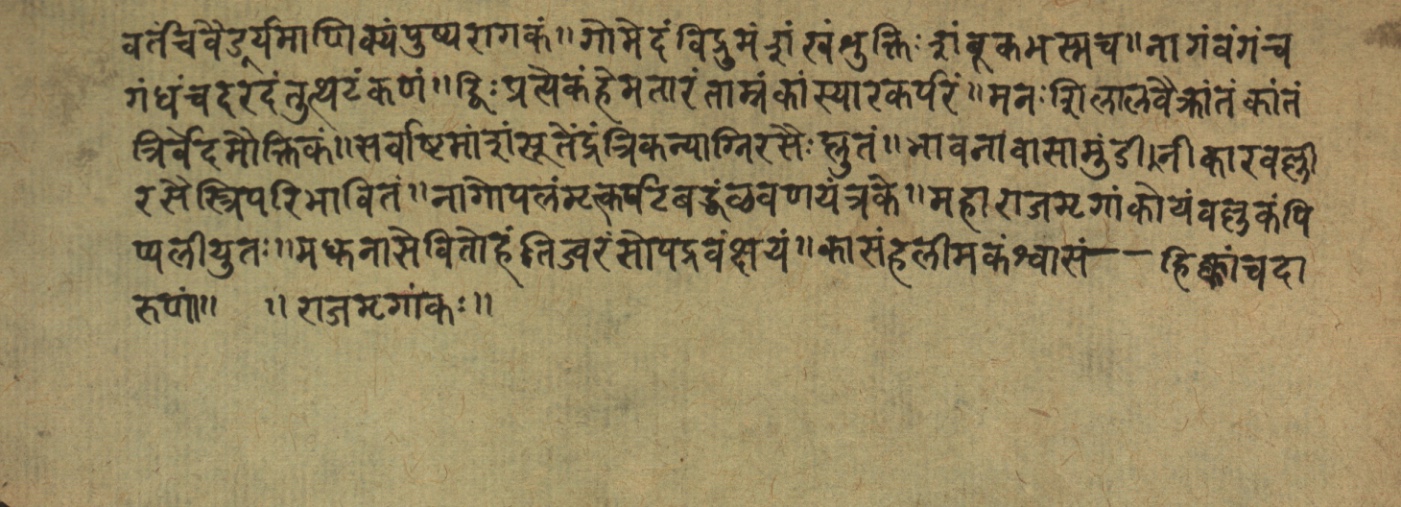 वर्तचवैडूर्यमाणिक्यंपुष्यरागकं॥गोमेदंविद्रुमंशंखंशुक्तिःशंबूकभस्मच॥नागंवंगंच
गंधंचदरदंतुत्थटंकणं॥द्विःप्रत्येकंहेमतारंताम्रंकांस्यारकर्परं॥मनःशिलालवैक्रांतंकांतं
त्रिर्वेदमौक्तिकं॥सर्वाष्टिमांशंसूतेंद्रंत्रिकन्याग्निरसैःप्लुतं॥भावनांवासामुंडीनीकारवल्ली
रसैस्त्रिपरिभावितं॥नागोपलंमृत्कर्पटिबद्धंळवणयंत्रके॥महाराजमृगांकोयंवल्लकंपि
प्पलीयुतः॥मध्वनासेवितोहंतिज्वरंसोपद्रवंक्षयं॥कासंहलीमकंश्वासं-- हिक्कांचदा
रुणां॥ ॥राजमृगांकः॥